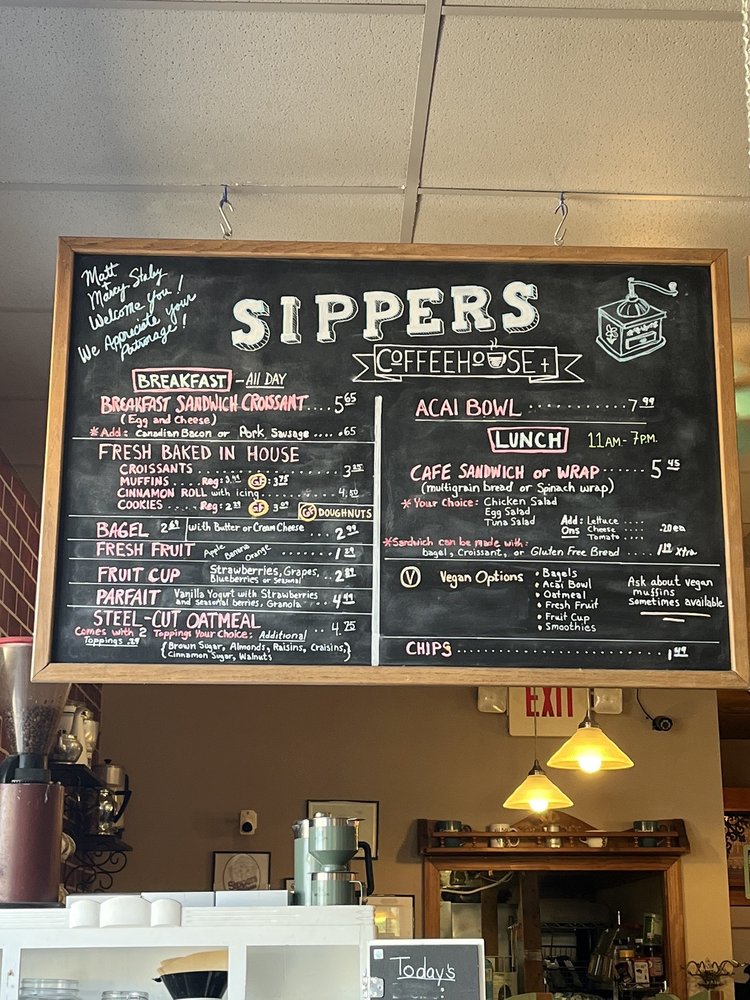 Matt
+
Marcy Staley
Welcome You!
We Appreciate your
Patronage!
SIPPERS
COFFEEHOUSE +
BREAKFAST - All DAY
BREAKFAST SANDWICH CROISSANT.... 5 65
(Egg and Cheese)
* Add: Canadian Bacon or Pork Sausage .... .65
FRESH BAKED IN HOUSE
CROISSANTS ............ 3 25
MUFFINS .... Reg: GF: 3 75
CINNAMON ROLL with icing ....... 4.50
COOKIES ... Reg: 2 39 GF 3 09 GF DOUGHNUTS
BAGEL 2 69 with Butter or Cream Cheese .... 2 99
FRESH FRUIT Apple Banana Orange ........ 1 29
FRUIT CUP Strawberries, Grapes,
Blueberries or Seasonal ... 2 89
PARFAIT Vanilla Yogurt with Strawberries
and seasonal berries, Granola ... 4 49
STEEL-CUT OATMEAL ... 4.75
Comes with 2 Toppings Your Choice: Additional
Toppings .29
{Brown Sugar, Almonds, Raisins, Craisins,
Cinnamon Sugar, Walnuts}
ACAI BOWL .......... 7 99
LUNCH 11AM-7PM.
CAFE SANDWICH or WRAP...... 5 45
(multigrain bread or Spinach wrap)
* Your Choice: Chicken Salad
Egg Salad
Tuna Salad
Add: Lettuce ....
Ons Cheese .... .20 ea
Tomato ....
*Sandwich can be made with:
bagel, Croissant, or Gluten Free Bread .... 1 00 xtra
V Vegan Options
• Bagels
• Acai Bowl
• Oatmeal
• Fresh Fruit
• Fruit Cup
• Smoothies
Ask about vegan
muffins
sometimes available
CHIPS ........................ 1 49
EXIT
Sippers
Today's